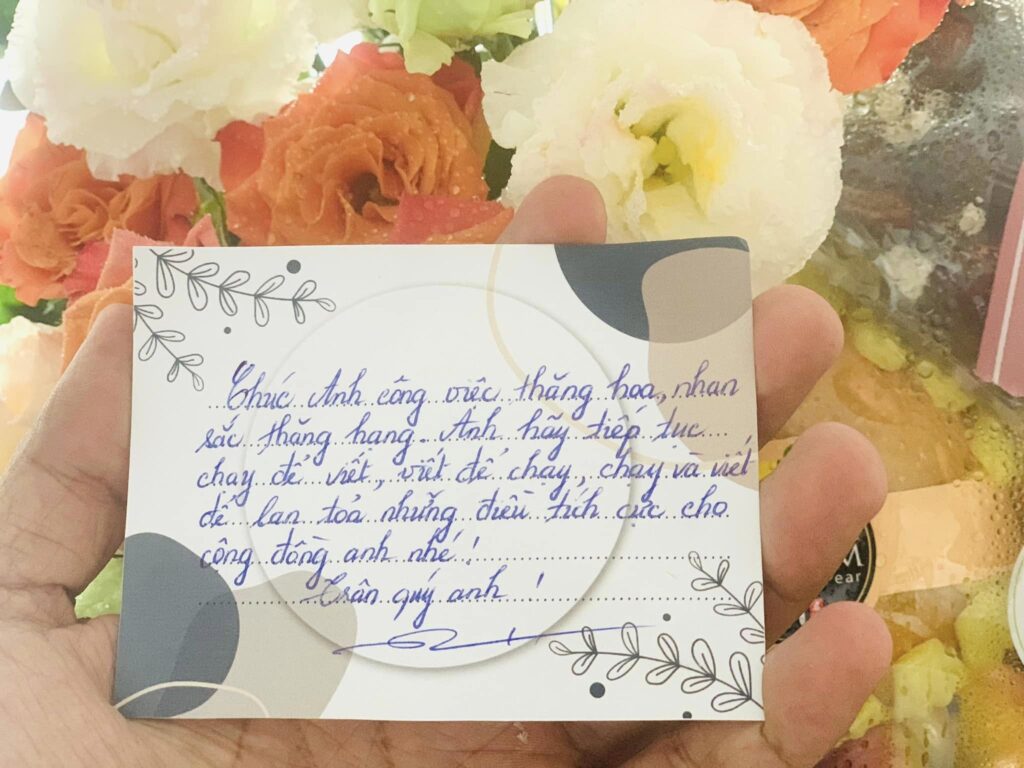 Chúc Anh công việc thăng hoa, nhan
sắc thăng hạng. Anh hãy tiếp tục
chạy để viết, viết để chạy, chạy và viết
để lan toả những điều tích cực cho
cộng đồng anh nhé!
Trân quý anh!
M
ear